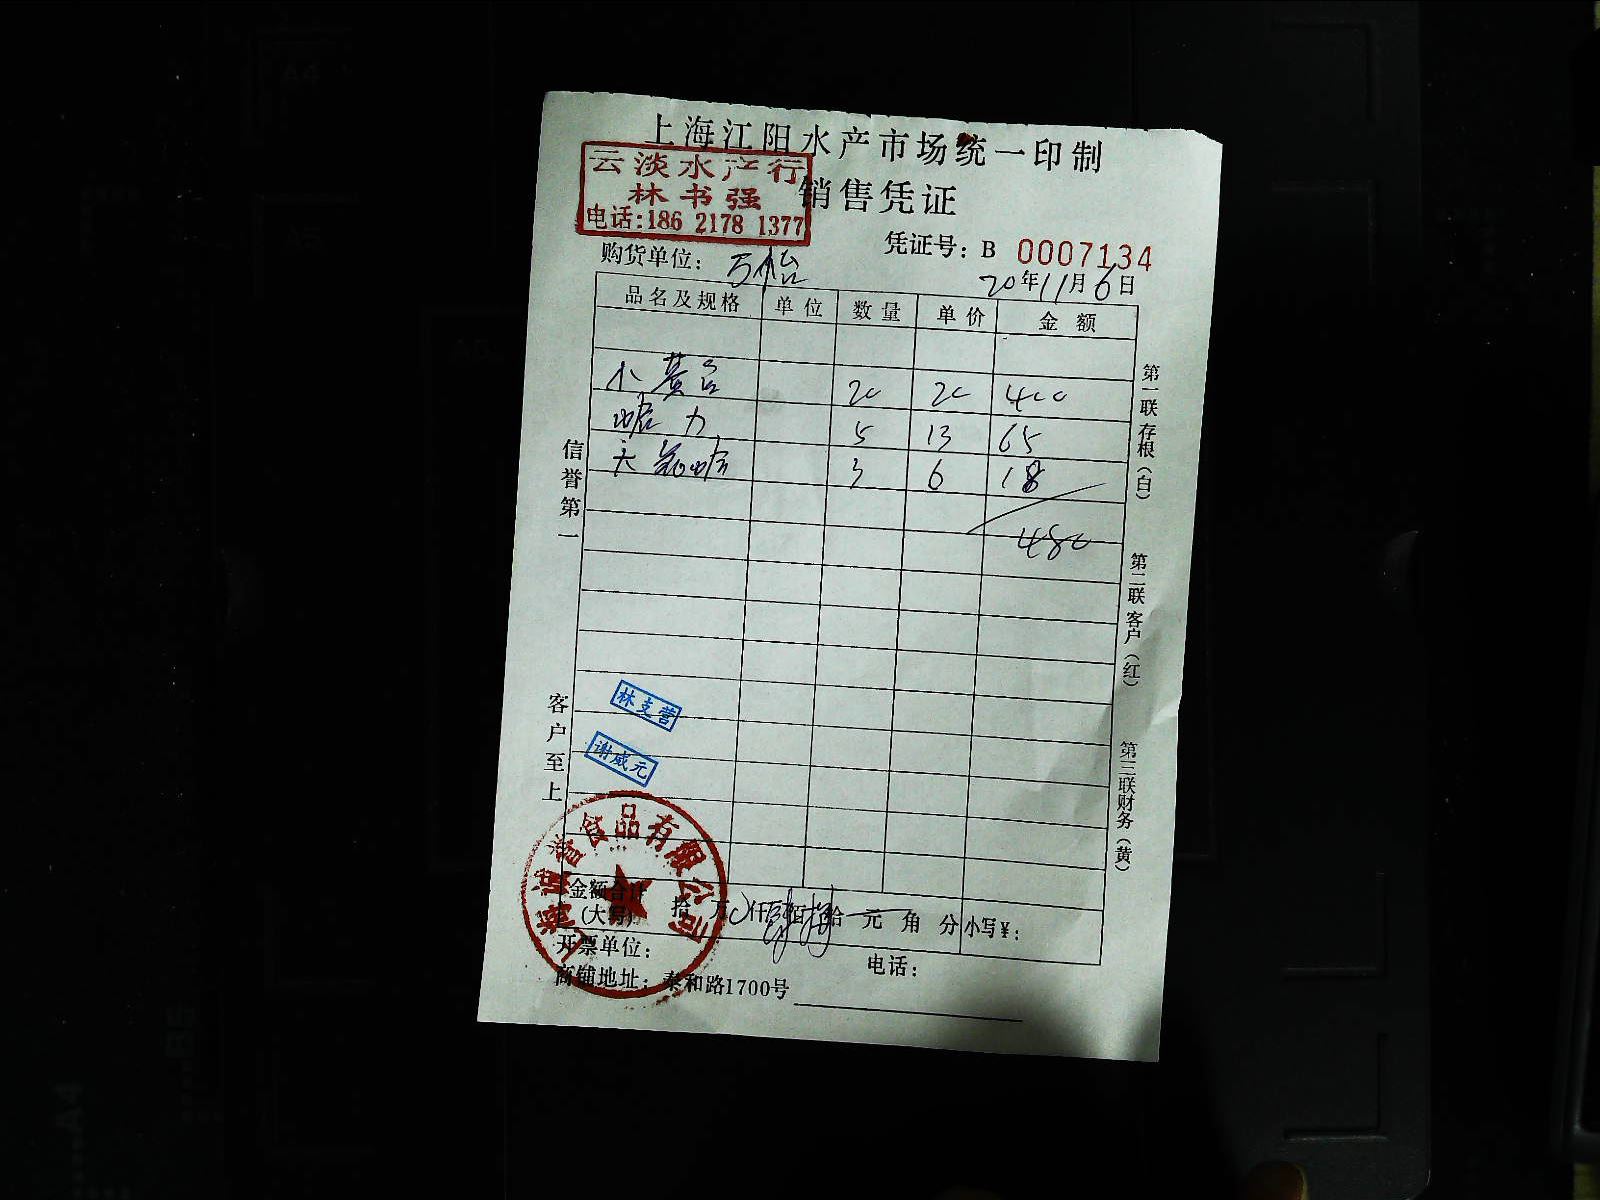 上海江阳水产市场统一印制
云淡水产行
林书强
电话:186 2178 1377
销售凭证
凭证号: B 0007134
购货单位: 万怡
20年11月6日
品名及规格 单位 数量 单价 金额
小黄 20 20 400
蛤力 5 13 65
3 6 18
480
信誉第一
客户至上
第一联存根(白)
第二联客户(红)
第三联财务(黄)
林支营
谢威元
食品有限公司
金额合计
(大写) 拾 万 仟 佰 拾 元 角 分 小写¥:
开票单位: 电话:
商铺地址: 泰和路1700号